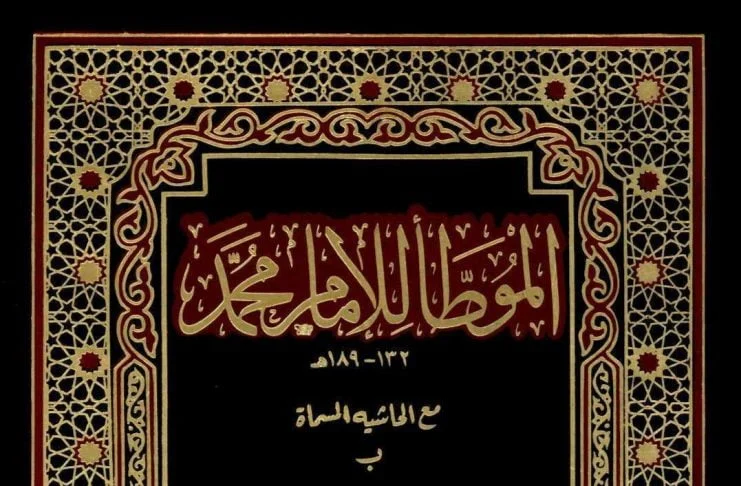 الموطأ للإمام محمد
١٣٢-١٨٩هـ
مع الحاشيه المسماة
ب